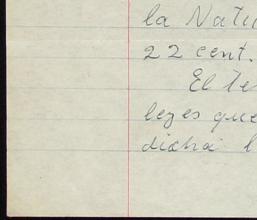 la Natu
22 cent.
El te
leyes que
dicha l